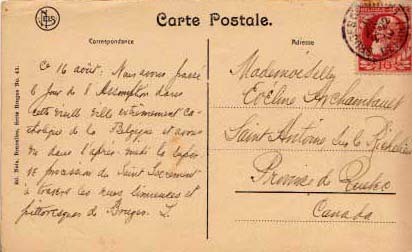 NELS
Carte Postale.
Correspondance
Adresse
Ce 16 août: Nous avons passé
le jour de l'Assomption dans
cette vieille ville extrêmement ca-
tholique de la Belgique et avons
vu dans l'après-midi la
procession du Saint Sacrement
à travers les rues sinueuses et
pittoresques de Bruges. L.
Mademoiselle
Eveline Archambault
Saint Antoine sur le Richelieu
Province de Quebec
Canada
Ed. Nels, Bruxelles, Série Bruges No. 41.